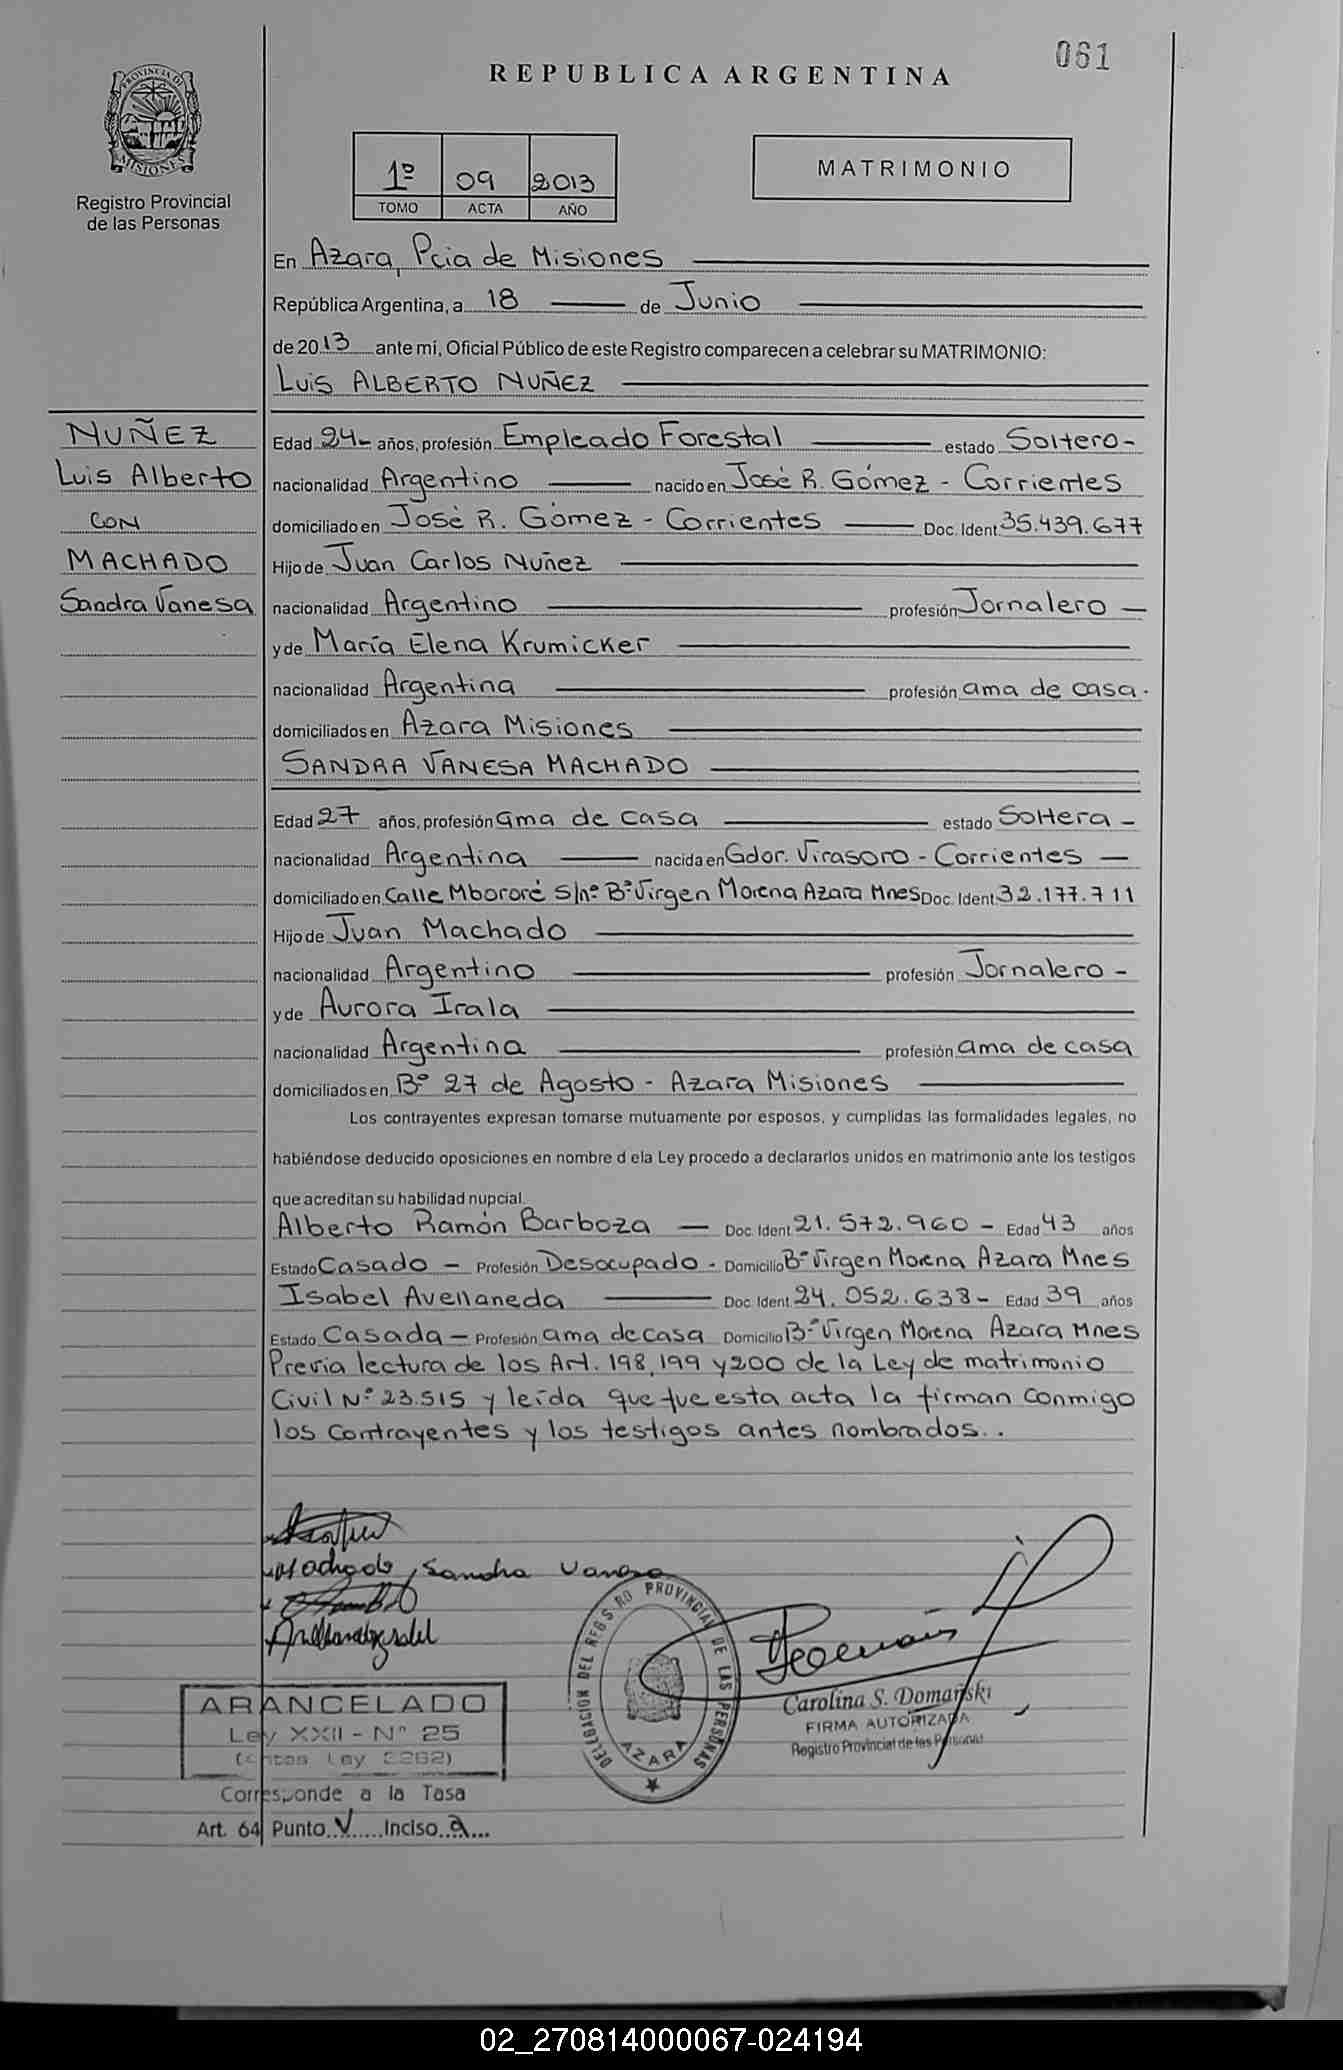 061
REPUBLICA ARGENTINA
PROVINCIA DE MISIONES
Registro Provincial
de las Personas
1º 09 2013
TOMO ACTA AÑO
MATRIMONIO
En Azara, Pcia de Misiones
República Argentina, a 18 de Junio
de 2013 ante mí, Oficial Público de este Registro comparecen a celebrar su MATRIMONIO:
LUIS ALBERTO NUÑEZ
NUÑEZ
Luis Alberto
CON
MACHADO
Sandra Vanesa
Edad 24- años, profesión Empleado Forestal estado Soltero-
nacionalidad Argentino nacido en José R. Gómez - Corrientes
domiciliado en José R. Gómez - Corrientes Doc. Ident. 35.439.677
Hijo de Juan Carlos Nuñez
nacionalidad Argentino profesión Jornalero -
y de María Elena Krumicker
nacionalidad Argentina profesión ama de casa.
domiciliados en Azara Misiones
SANDRA VANESA MACHADO
Edad 27 años, profesión ama de casa estado Soltera -
nacionalidad Argentina nacida en Gdor. Virasoro - Corrientes -
domiciliado en Calle Mbororé s/nº Bº Virgen Morena Azara Mnes Doc. Ident. 32.177.711
Hijo de Juan Machado
nacionalidad Argentino profesión Jornalero -
y de Aurora Irala
nacionalidad Argentina profesión ama de casa
domiciliados en Bº 27 de Agosto - Azara Misiones
Los contrayentes expresan tomarse mutuamente por esposos, y cumplidas las formalidades legales, no
habiéndose deducido oposiciones en nombre d ela Ley procedo a declararlos unidos en matrimonio ante los testigos
que acreditan su habilidad nupcial.
Alberto Ramón Barboza - Doc. Ident. 21.572.960 - Edad 43 años
Estado Casado - Profesión Desocupado - Domicilio Bº Virgen Morena Azara Mnes
Isabel Avellaneda Doc. Ident. 24.052.638- Edad 39 años
Estado Casada - Profesión ama de casa Domicilio Bº Virgen Morena Azara Mnes
Previa lectura de los Art. 198, 199 y 200 de la Ley de matrimonio
Civil Nº 23.515 y leída que fue esta acta la firman conmigo
los contrayentes y los testigos antes nombrados..
Machado, Sandra Vanesa
DELEGACION DEL REGISTRO PROVINCIAL DE LAS PERSONAS
AZARA
Carolina S. Domański
FIRMA AUTORIZADA
Registro Provincial de las Personas
ARANCELADO
Ley XXII - Nº 25
(antes Ley 2262)
Corresponde a la Tasa
Art. 64 Punto V Inciso a
02_270814000067-024194